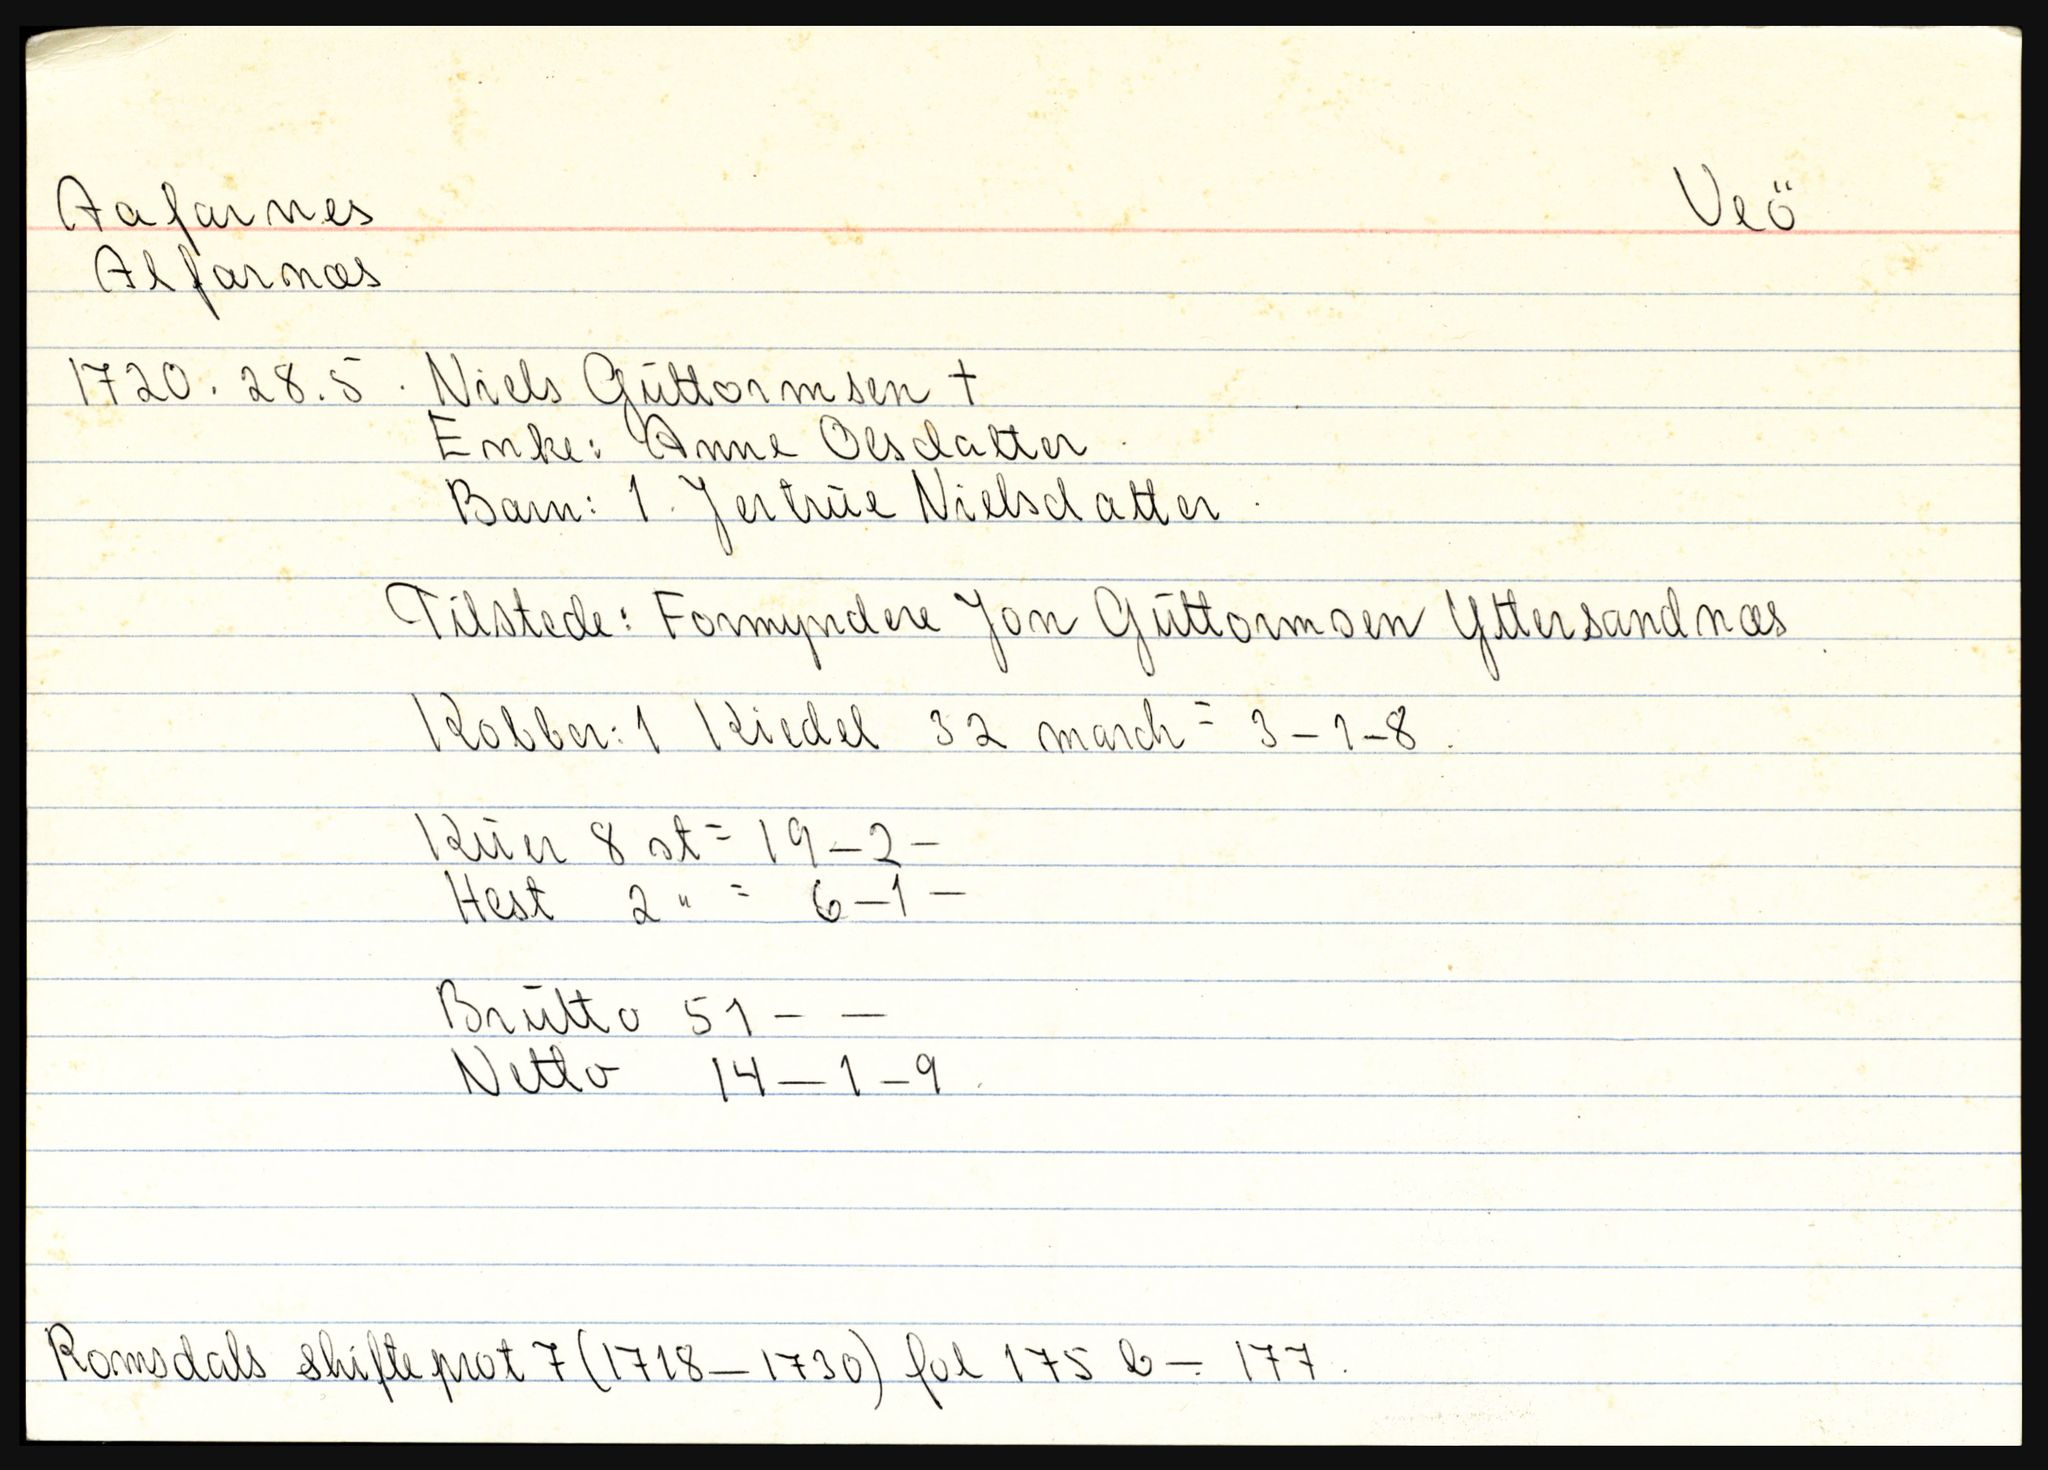 Aafarnes Veö
Alfarnæs
1720. 28.5. Niels Güttormsen †
Enke: Anne Olsdatter
Barn: 1. Jertrüe Nielsdatter
Tilstede: Formyndere Jon Güttormsen Yttersandnæs
Kobber: 1 Kiedel 32 march = 3-1-8.
Küer 8 st = 19-2-
Hest 2 " = 6-1-
Brütto 51 - -
Netto 14-1-9.
Romsdals skifteprot 7 (1718-1730) fol 175 b - 177.